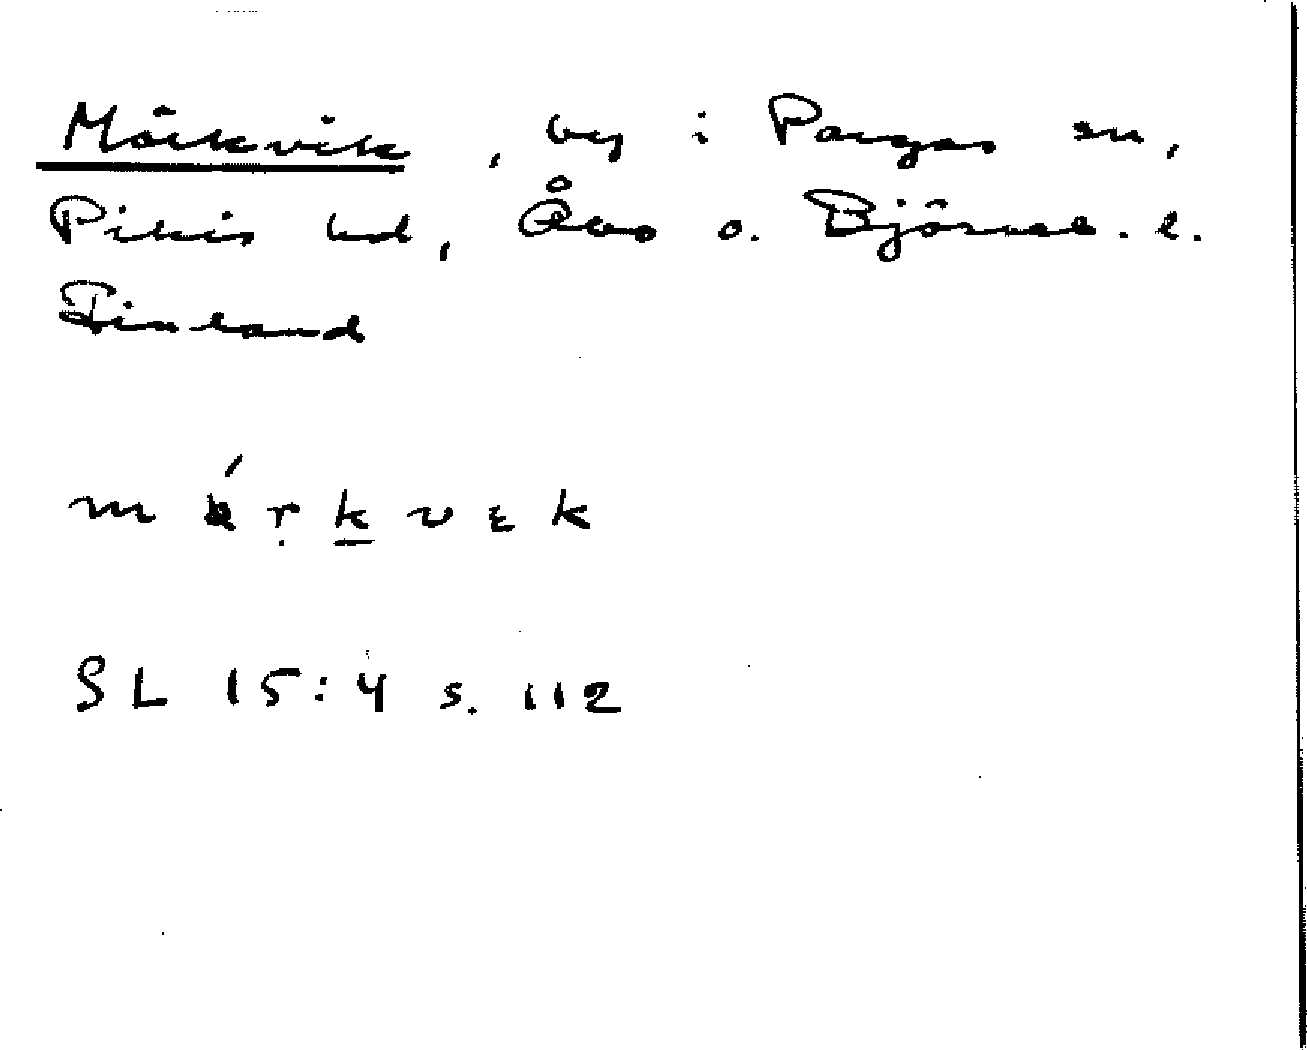 Mörkvik, by i Pargas sn,
Pikis hd, Åbo o. Björneb. l.
Finland
SL 15:4 s. 112